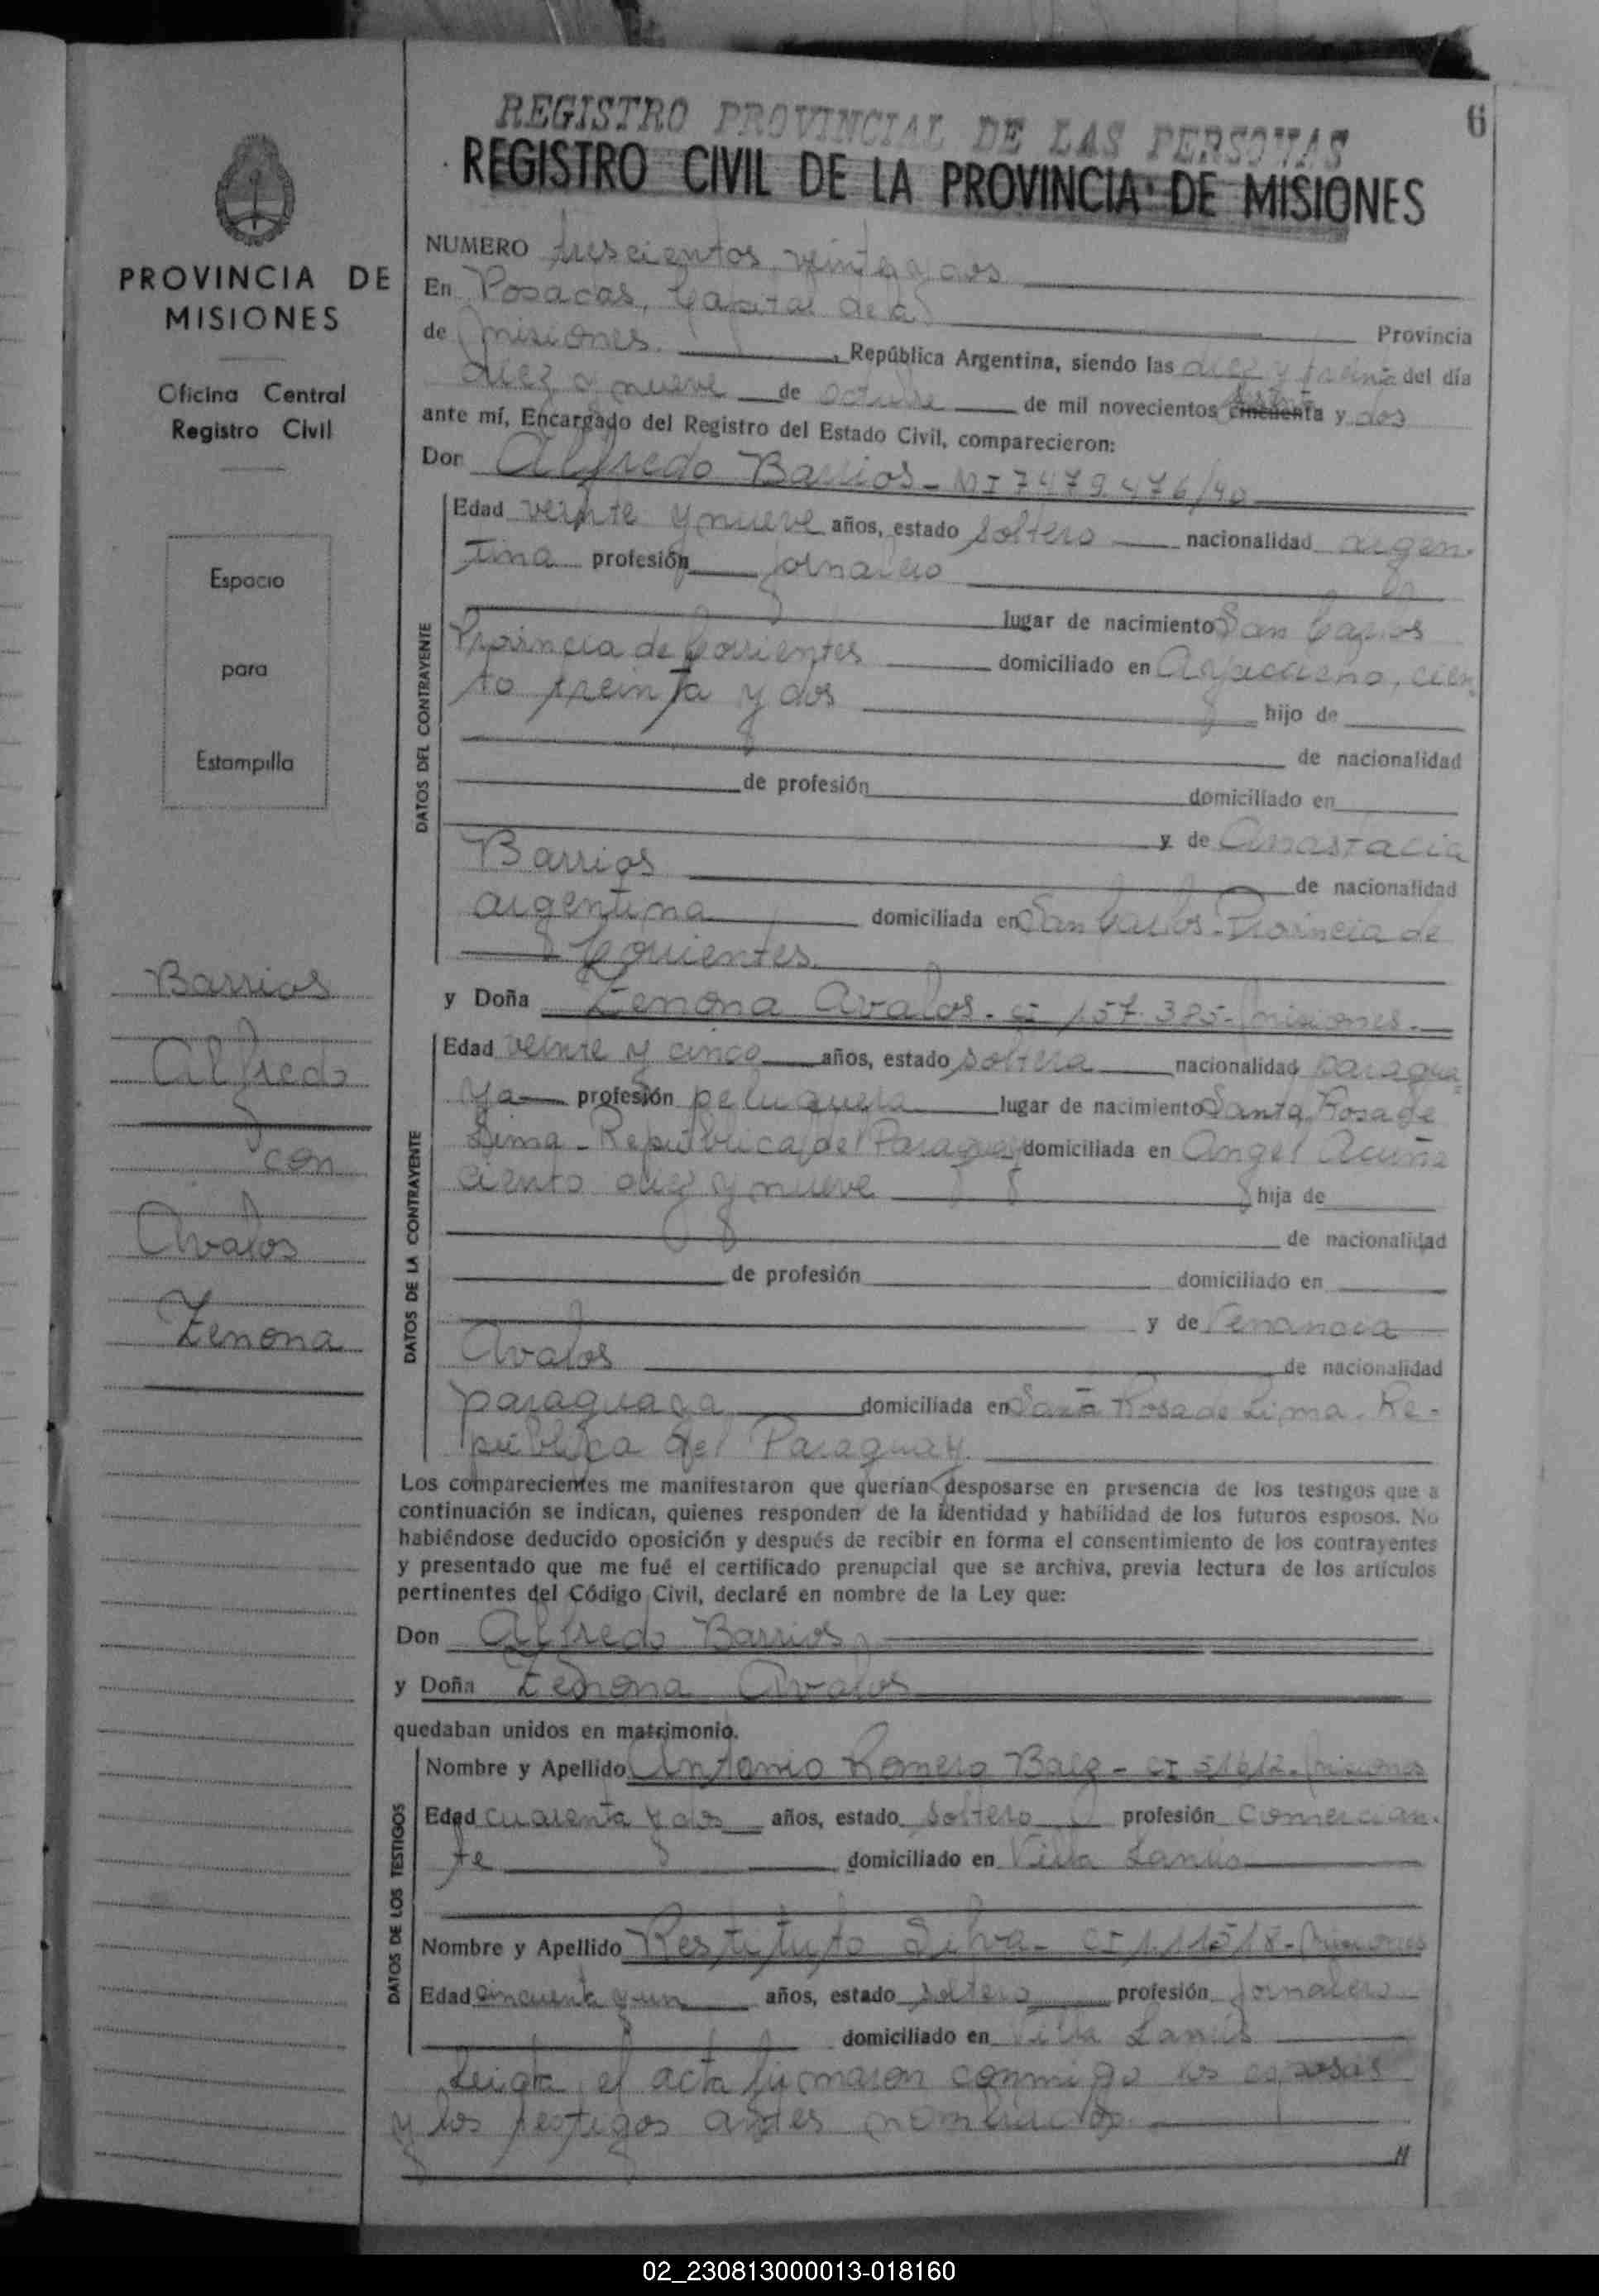 REGISTRO PROVINCIAL DE LAS PERSONAS
6
REGISTRO CIVIL DE LA PROVINCIA DE MISIONES
PROVINCIA DE
MISIONES
Oficina Central
Registro Civil
Espacio
para
Estampilla
Barrios
Alfredo
con
Avalos
Zenona
NUMERO trescientos veinte y dos
En Posadas, Capital de la Provincia
de Misiones, República Argentina, siendo las diez y treinta del día
diez y nueve de octubre de mil novecientos cincuenta sesenta y dos
ante mí, Encargado del Registro del Estado Civil, comparecieron:
Don Alfredo Barrios - MI 7479.476/40
DATOS DEL CONTRAYENTE
Edad veinte y nueve años, estado soltero nacionalidad argen-
tina profesión jornalero
lugar de nacimiento San Carlos
Provincia de Corrientes domiciliado en Ayacucho, cien
to treinta y dos hijo de
de nacionalidad
de profesión domiciliado en
y de Anastacia
Barrios de nacionalidad
argentina domiciliada en San Carlos - Provincia de
Corrientes
y Doña Zenona Avalos - CI 157.385 - Misiones.
DATOS DE LA CONTRAYENTE
Edad veinte y cinco años, estado soltera nacionalidad paragua
ya profesión peluquera lugar de nacimiento Santa Rosa de
Lima - República del Paraguay domiciliada en Angel Acuña
ciento diez y nueve hija de
de nacionalidad
de profesión domiciliado en
y de Venancia
Avalos de nacionalidad
paraguaya domiciliada en Santa Rosa de Lima. Re-
pública del Paraguay.
Los comparecientes me manifestaron que querían desposarse en presencia de los testigos que a
continuación se indican, quienes responden de la identidad y habilidad de los futuros esposos. No
habiéndose deducido oposición y después de recibir en forma el consentimiento de los contrayentes
y presentado que me fué el certificado prenupcial que se archiva, previa lectura de los artículos
pertinentes del Código Civil, declaré en nombre de la Ley que:
Don Alfredo Barrios
y Doña Zenona Avalos
quedaban unidos en matrimonio.
DATOS DE LOS TESTIGOS
Nombre y Apellido Antonio Romero Baez - CI Misiones
Edad cuarenta y dos años, estado soltero profesión comercian-
te domiciliado en Villa Lanús
Nombre y Apellido Restituto Silva - CI Misiones
Edad cincuenta y un años, estado soltero profesión jornalero
domiciliado en Villa Lanús
Leida el acta firmaron conmigo los esposos
y los testigos antes nombrados
02_230813000013-018160